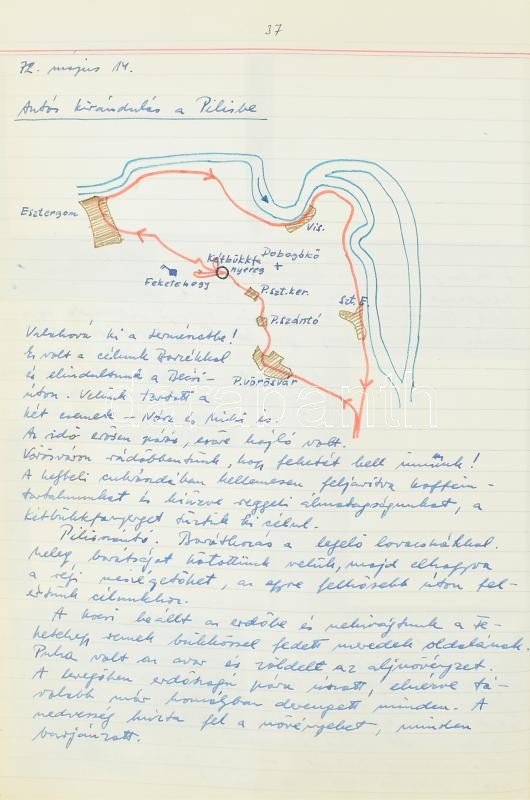 37
72. május 14.
Autós kirándulás a Pilisbe
Esztergom
Vis.
Kétbükkfa
nyereg
Dobogókő
+
Feketehegy
P.szt.ker.
Szt. E.
P.szántó
P.vörösvár
Valahová ki a természetbe!
Ez volt a célunk Barzékkal
és elindultunk a Bécsi-
úton. Velünk tartott a
két csemete – Nóra és Miki is.
Az idő erősen párás, esőre hajló volt.
Vörösváron rádöbbentünk, hogy feketét kell innunk!
A helybeli cukrászdában kellemesen feljavítva koffein-
tartalmunkat és kiűzve reggeli álmatagságunkat, a
Kétbükkfanyerget tűztük ki célul.
Pilisszántó. Barátkozás a legelő lovacskákkal.
Meleg barátságot kötöttünk velük, majd elhagyva
a régi mészégetőket, az egyre felhősebb úton fel-
értünk célunkhoz.
A kocsi beállt az erdőbe és nekivágtunk a Fe-
ketehegy remek bükkössel fedett meredek oldalának.
Puha volt az avar és zöldelt az aljnövényzet.
A levegőben erdőszagú pára úszott, elnézve tá-
volabb már homályban derengett minden. A
nedvesség húzta fel a növényeket, minden
burjánzott.
darabanth